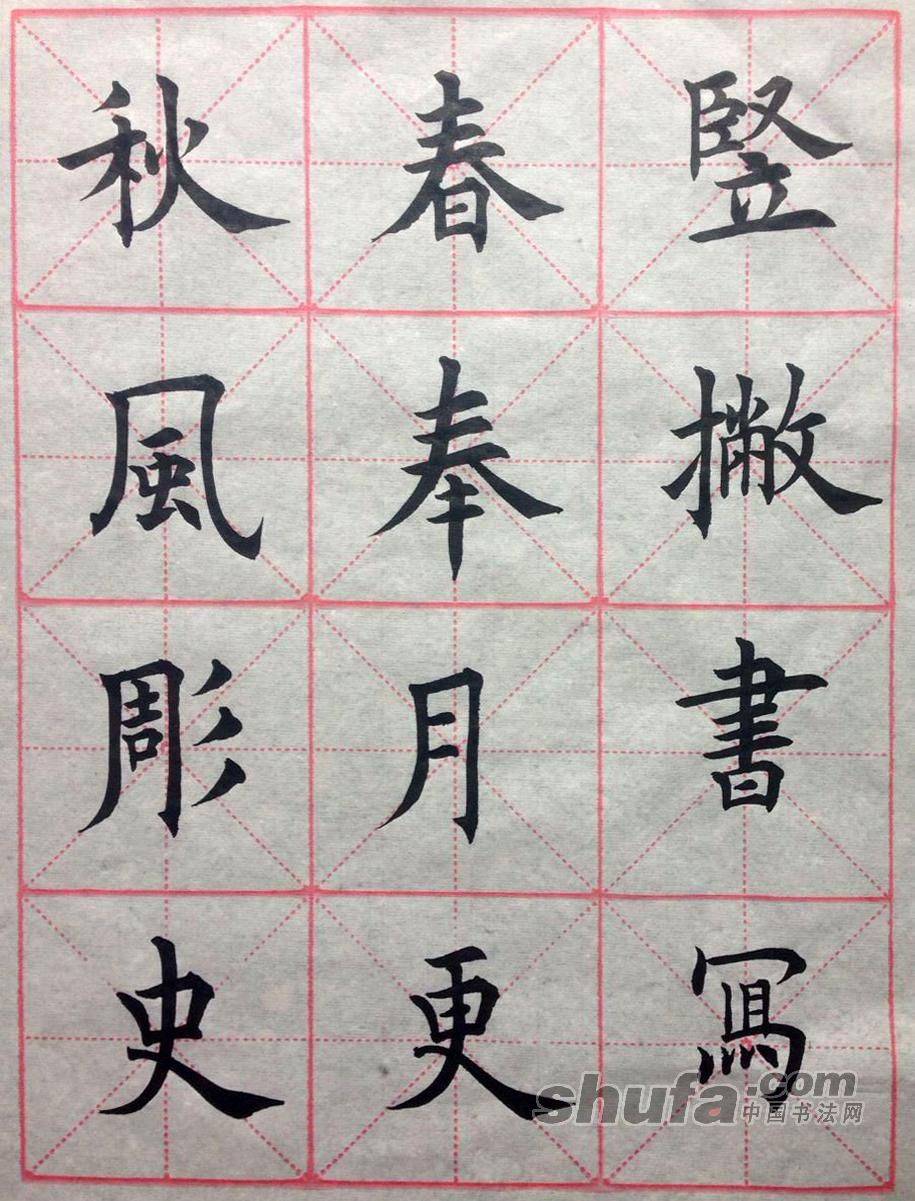 竪撇書寫
春奉月更
秋風彫史
shufa.com
中国书法网